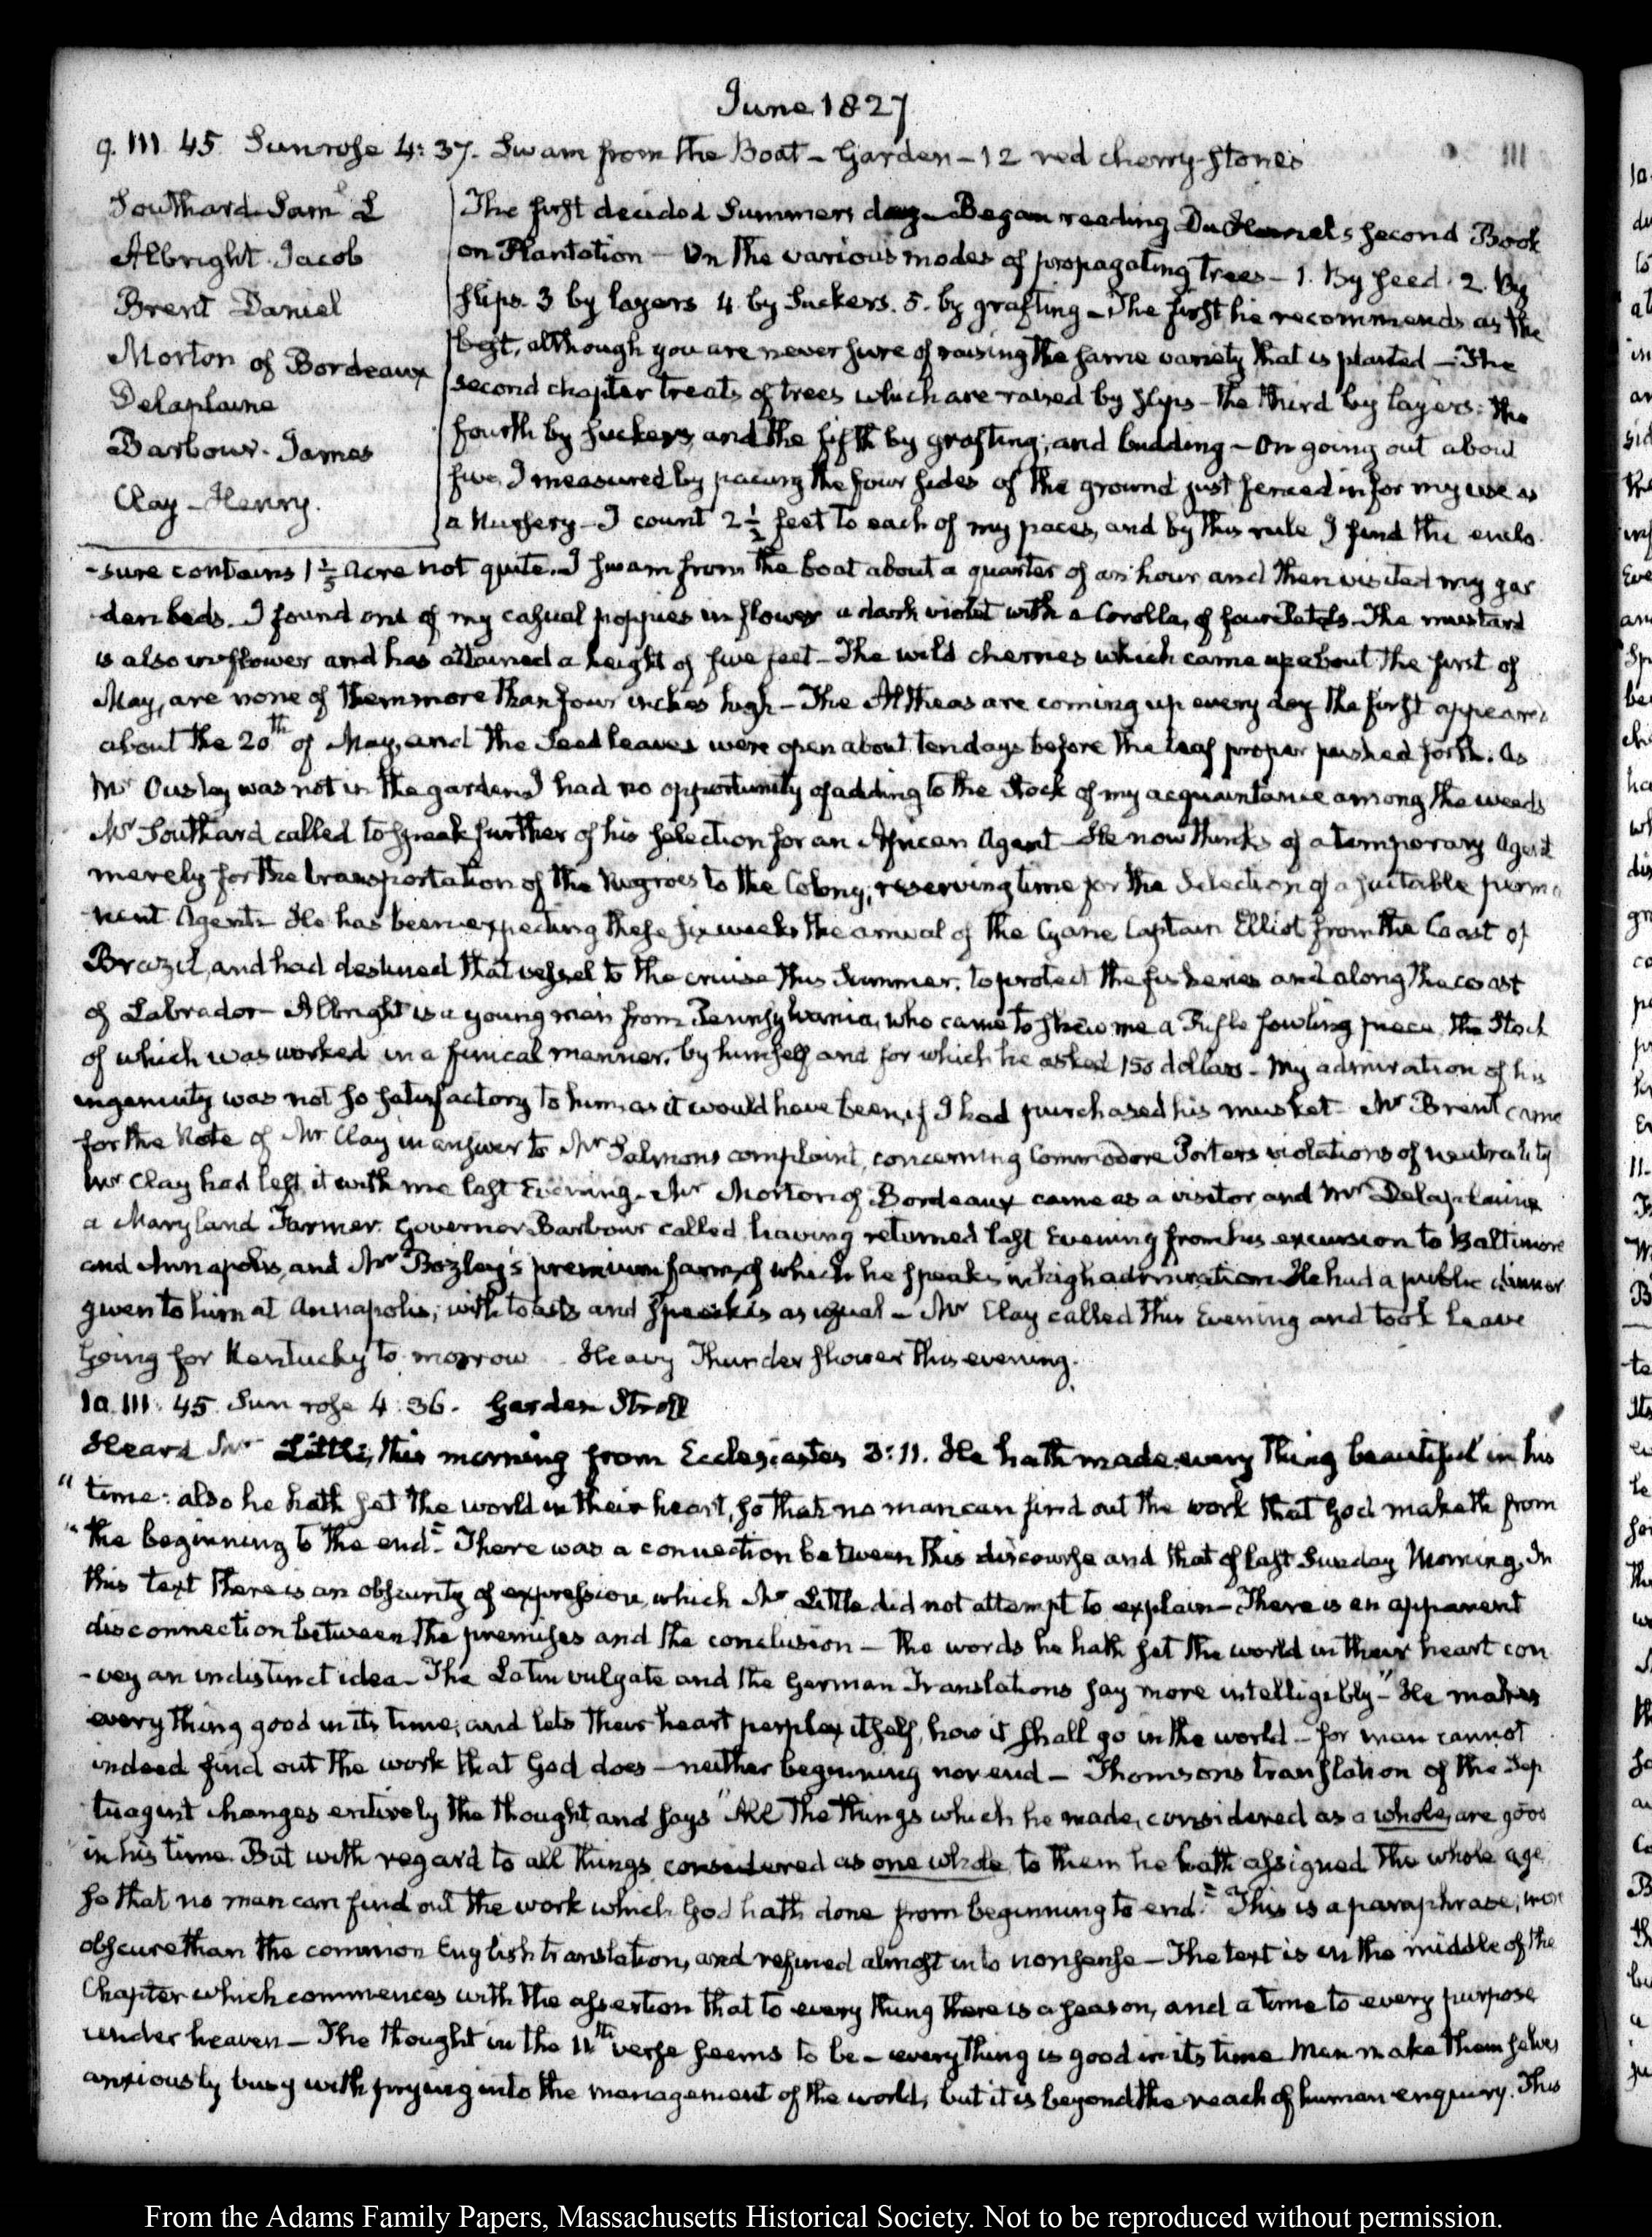 June 1827
9. III 45 Sun rose 4:37. Swam from the Boat - Garden - 12 red cherry-stones
III
Southard Saml L
Albright. Jacob
Brent Daniel
Morton of Bordeaux
Delaplaine
Barbour. James
Clay - Henry.
The first decided Summers day - Began reading DuHamels second Book
on Plantation - On the various modes of propagating trees - 1. By seed. 2. By
slips. 3 by layers 4. by suckers. 5. by grafting - The first he recommends as the
best, although you are never sure of raising the same variety that is planted - The
second chapter treats of trees which are raised by slips - the third by layers: the
fourth by suckers, and the fifth by grafting; and budding - On going out about
five, I measured by pacing the four sides of the ground just fenced in for my use as
a Nursery - I count 2 1/2 feet to each of my paces, and by this rule I find the enclo
-sure contains 1 1/5 Acre not quite. I swam from the boat about a quarter of an hour and then visited my gar
den beds. I found one of my casual poppies in flower a dark violet with a Corolla, of four Petals. The mustard
is also in flower and has attained a height of five feet - The wild cherries which came up about the first of
May, are none of them more than four inches high - The Altheas are coming up every day the first appeared
about the 20th of May, and the Seed leaves were open about ten days before the leaf proper pushed forth. As
Mr Ousley was not in the garden I had no opportunity of adding to the Stock of my acquaintance among the weeds
Mr Southard called to speak further of his selection for an African Agent - He now thinks of a temporary Agent
merely for the transportation of the Negroes to the Colony; reserving time for the Selection of a suitable perma
-nent Agent - He has been expecting these six weeks the arrival of the Cyane Captain Elliot from the Coast of
Brazil, and had destined that vessel to the cruise this Summer. to protect the fisheries and along the coast
of Labrador - Albright is a young man from Pennsylvania, who came to shew me a Rifle fowling piece, the Stock
of which was worked in a finical manner, by himself and for which he asked 150 dollars - My admiration of his
ingenuity was not so satisfactory to him, as it would have been, if I had purchased his musket - Mr Brent came
for the Note of Mr Clay in answer to Mr Salmons complaint, concerning Commodore Porters violations of neutrality
Mr Clay had left it with me last Evening. Mr Morton of Bordeaux came as a visitor and Mr Delaplaine
a Maryland Farmer. Governor Barbour called having returned last Evening from his excursion to Baltimore
and Annapolis, and Mr Bozley's premium farm, of which he speaks in high admiration - He had a public dinner
given to him at Annapolis; with toasts and speeches as usual - Mr Clay called this Evening and took leave
Going for Kentucky to morrow - Heavy Thunder shower this evening.
10. III. 45 Sun rose 4:36. Garden Stroll
Heard Mr Little, this morning from Ecclesiastes 3:11. He hath made every thing beautiful in his
" time: also he hath set the world in their heart, so that no man can find out the work that God maketh from
" the beginning to the end" - There was a connection between this discourse and that of last Sunday Morning. In
this text there is an obscurity of expression, which Mr Little did not attempt to explain - There is an apparent
disconnection between the premises and the conclusion - the words he hath set the world in their heart con
-vey an indistinct idea - The Latin vulgate and the German Translations say more intelligibly - "He makes
every thing good in its time, and lets their heart perplex itself, how it shall go in the world - for man cannot
indeed find out the work that God does - neither beginning nor end - Thomsons translation of the Sep
tuagint changes entirely the thought and says "All the things which he made, considered as a whole, are good
in his time. But with regard to all things considered as one whole, to them he hath assigned the whole age
so that no man can find out the work which God hath done from beginning to end." This is a paraphrase, more
obscure than the common English translation, and refined almost into nonsense - The text is in the middle of the
Chapter which commences with the assertion that to every thing there is a season, and a time to every purpose
under heaven - The thought in the 11th verse seems to be - every thing is good in its time Men make themselves
anxiously busy with prying into the management of the world, but it is beyond the reach of human enquiry. This
From the Adams Family Papers, Massachusetts Historical Society. Not to be reproduced without permission.